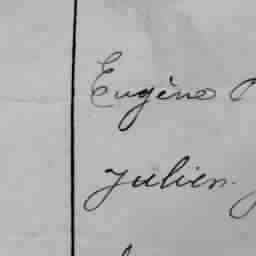 Eugène
Julien